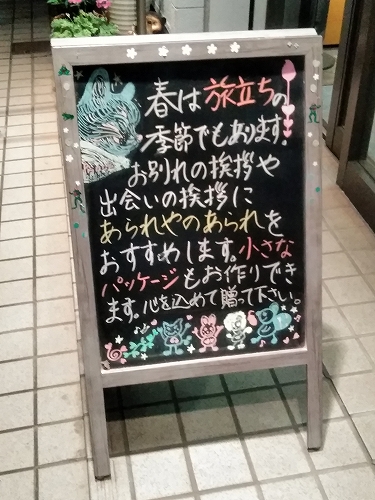 春は旅立ちの
季節でもあります。
お別れの挨拶や
出会いの挨拶に
あられやのあられを
おすすめします。小さな
パッケージもお作りでき
ます。心を込めて贈って下さい。